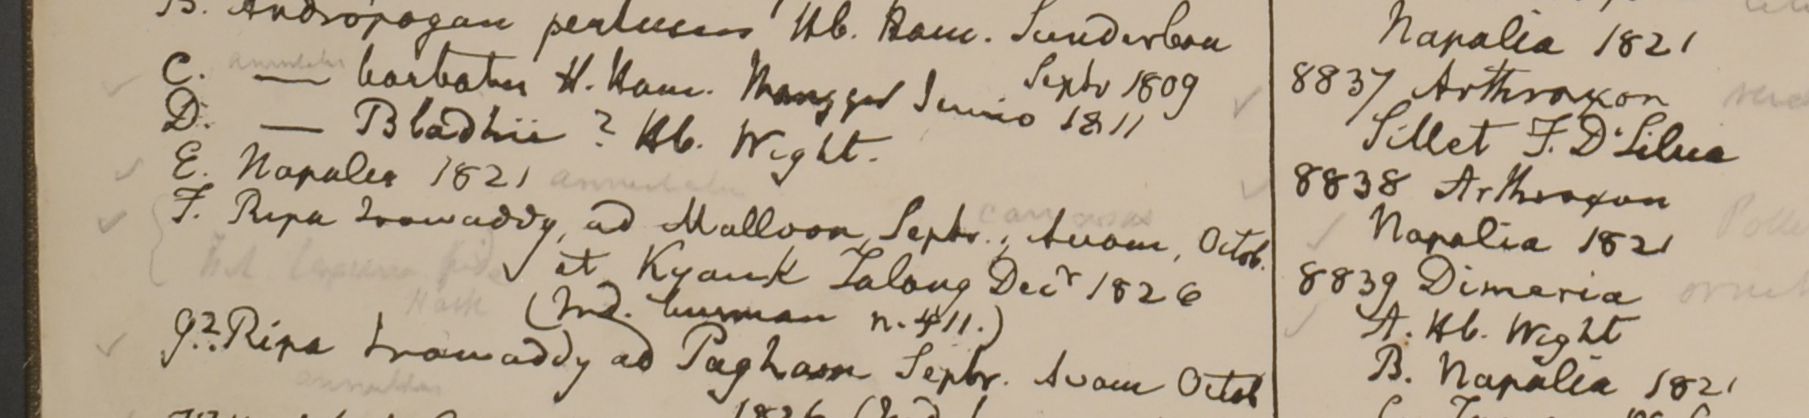 B. Andropogon pertusus Hb. Ham. Sunderbon
Septr 1809
C. — barbatus H. Ham. Junio 1811
D. — Bladhii ? Hb. Wight.
E. Napalia 1821 annulatus
F. Ripa Irawaddy, ad Malloon, Septr., Avam, Octob.
et Kyauk Talong Decr 1826
(Ind. burman n. 411.)
g?. Ripa Irawaddy ad Pagham Septr. Avam Octob
1826
Napalia 1821
8837 Arthraxon
Sillet F. D'Silva
8838 Arthraxon
Napalia 1821
8839 Dimeria
A. Hb. Wight
B. Napalia 1821